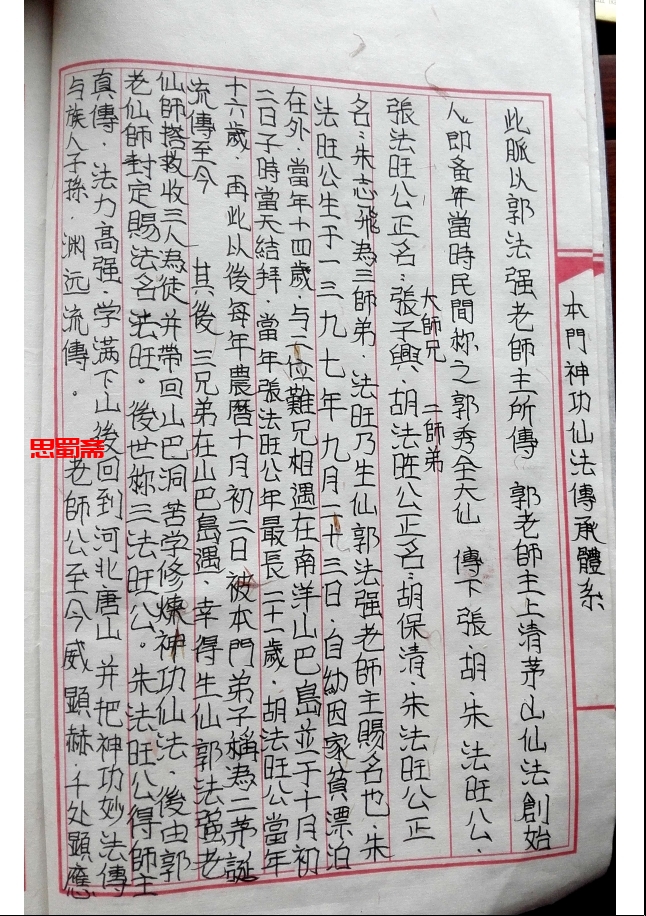 本門神功仙法傳承體系
此脈以郭法强老師主所傳 郭老師主上清茅山仙法創始
人即蚤年當時民間称之郭秀全大仙 傳下張.胡.朱法旺公.
張法旺公正名:張子興.胡法旺公正名:胡保清.朱法旺公正
大師兄 二師弟
名:朱志飛為三師弟.法旺乃生仙郭法强老師主賜名也.朱
法旺公生于一三九七年九月二十三日.自幼因家貧漂泊
在外.當年十四歲.与二位難兄相遇在南洋山巴島並于十月初
二日子時當天結拜.當年張法旺公年最長二十一歲.胡法旺公當年
十六歲.再此以後每年農曆十月初二日被本門弟子稱為二茅誕
流傳至今 其後 三兄弟在山巴島遇.幸得生仙郭法强老
仙師搭救收三人為徒并帶回山巴洞苦学修煉神功仙法.後由郭
老仙師封定賜法名法旺。後世称三法旺公。朱法旺公得師主
真傳.法力高强.学满下山後回到河北唐山 并把神功妙法傳
与族人子孫.渊远流傳。 老師公至今威顯赫.千处顕應
思蜀斋